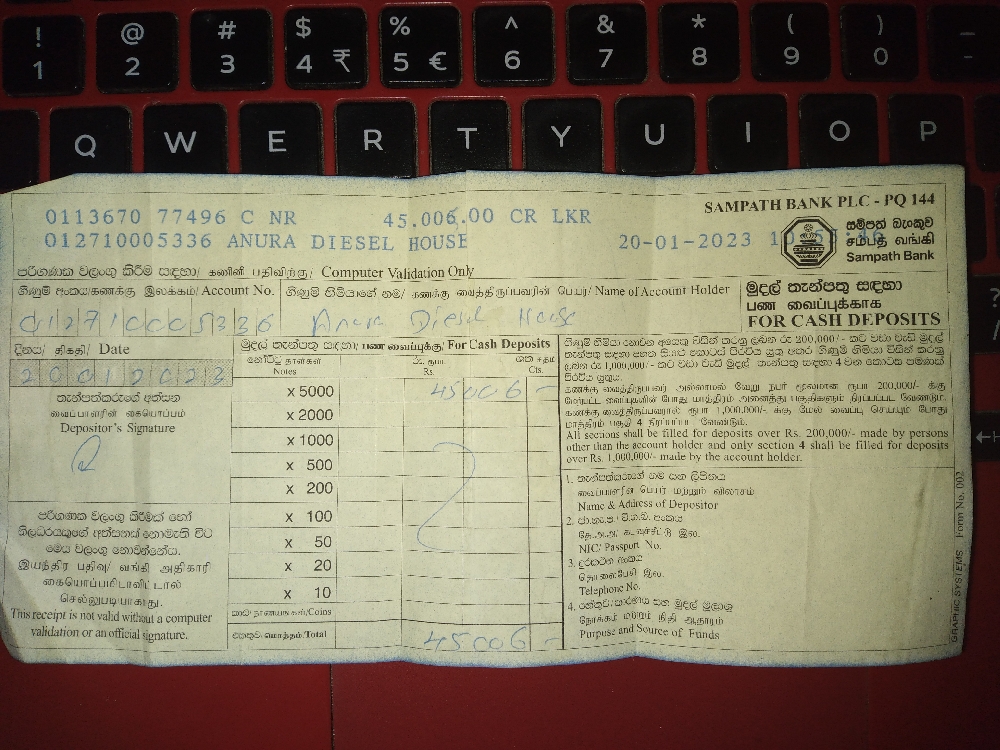 ! @ # $ % ^ & * ( ) _
1 2 3 4 ₹ 5 € 6 7 8 9 0 -
Q W E R T Y U I O P
SAMPATH BANK PLC - PQ 144
0113670 77496 C NR 45.006.00 CR LKR
012710005336 ANURA DIESEL HOUSE
20-01-2023
සම්පත් බැංකුව
சம்பத் வங்கி
Sampath Bank
පරිගණක වලංගු කිරීම් සඳහා/ கணினி பதிவிற்கு/ Computer Validation Only
ගිණුම් අංකය/கணக்கு இலக்கம்/ Account No.
ගිණුම් හිමියාගේ නම/ கணக்கு வைத்திருப்பவரின் பெயர்/ Name of Account Holder
012710005336 Anura Diesel House
මුදල් තැන්පතු සඳහා
பண வைப்புக்காக
FOR CASH DEPOSITS
දිනය/ திகதி/ Date
20012023
තැන්පත්කරුගේ අත්සන
வைப்பாளரின் கையொப்பம்
Depositor's Signature
පරිගණක වලංගු කිරීමක් හෝ
නිලධරයකුගේ අත්සනක් නොමැති විට
මෙය වලංගු නොවන්නේය.
இயந்திர பதிவு/ வங்கி அதிகாரி
கையொப்பமிடாவிட்டால்
செல்லுபடியாகாது.
This receipt is not valid without a computer
validation or an official signature.
මුදල් තැන්පතු සඳහා/ பண வைப்புக்கு/ For Cash Deposits
නෝට්ටු தாள்கள்
Notes
රු. ரூபா.
Rs
ශත சதம்
Cts.
x 5000 45006 -
x 2000
x 1000
x 500
x 200
x 100
x 50
x 20
x 10
කාසි/நாணயங்கள்/Coins
எකතුව/மொத்தம்/Total 45006 -
All sections shall be filled for deposits over Rs. 200,000/- made by persons
other than the account holder and only section 4 shall be filled for deposits
over Rs. 1,000,000/- made by the account holder.
1. තැන්පත්කරුගේ නම සහ ලිපිනය
வைப்பாளரின் பெயர் மற்றும் விலாசம்
Name & Address of Depositor
2.
NIC/ Passport No.
3. දුරකථන අංකය
தொலைபேசி இல.
Telephone No.
4.
நோக்கம் மற்றும் நிதி ஆதாரம்
Purpose and Source of Funds
GRAPHIC SYSTEMS Form No. 002